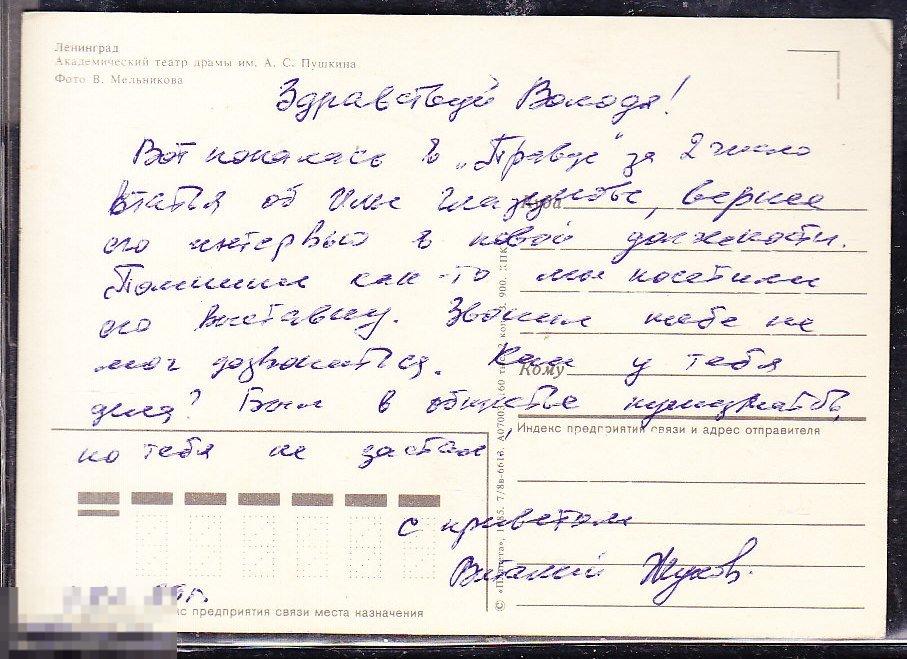 Ленинград
Академический театр драмы им. А. С. Пушкина
Фото В. Мельникова
Здравствуй Володя!
Вот попалась в „Правде" за 2 число
статья об Илье Глазунове, вернее
его интервью в новой должности.
Помнишь как-то мы посетили
его выставку. Звонил тебе не
мог дозвониться. Как у тебя
дела? Был в обществе нумизматов,
но тебя не застал,
с приветом
Виталий Жуков.
Куда
Кому
Индекс предприятия связи и адрес отправителя
© «Планета», 1985. 7/8в-6616. А07003. 60 к. 900. КПК
г.
предприятия связи места назначения